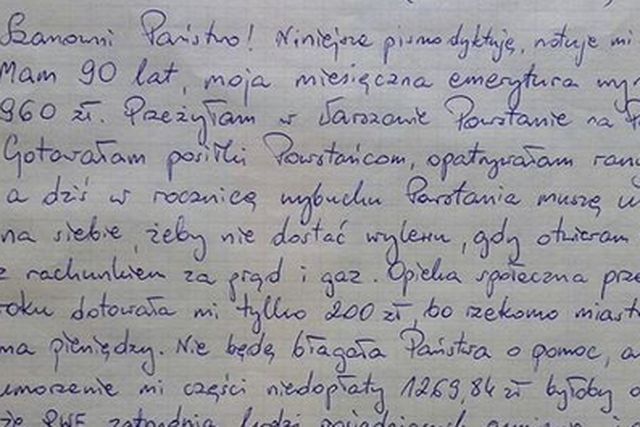 Szanowni Państwo! Niniejsze pismo dyktuję, notuje mi
Mam 90 lat, moja miesięczna emerytura wy
960 zł. Przeżyłam w Warszawie Powstanie na
Gotowałam posiłki Powstańcom, opatrywałam ran
a dziś w rocznicę wybuchu Powstania muszę
na siebie, żeby nie dostać wylewu, gdy otwieram
z rachunkiem za prąd i gaz. Opieka społeczna prze
roku dotowała mi tylko 200 zł, bo rzekomo miast
ma pieniędzy. Nie będę błagała Państwa o pomoc, a
umorzenie mi części niedopłaty 1269,84 zł byłoby
że zatrudnia ludzi